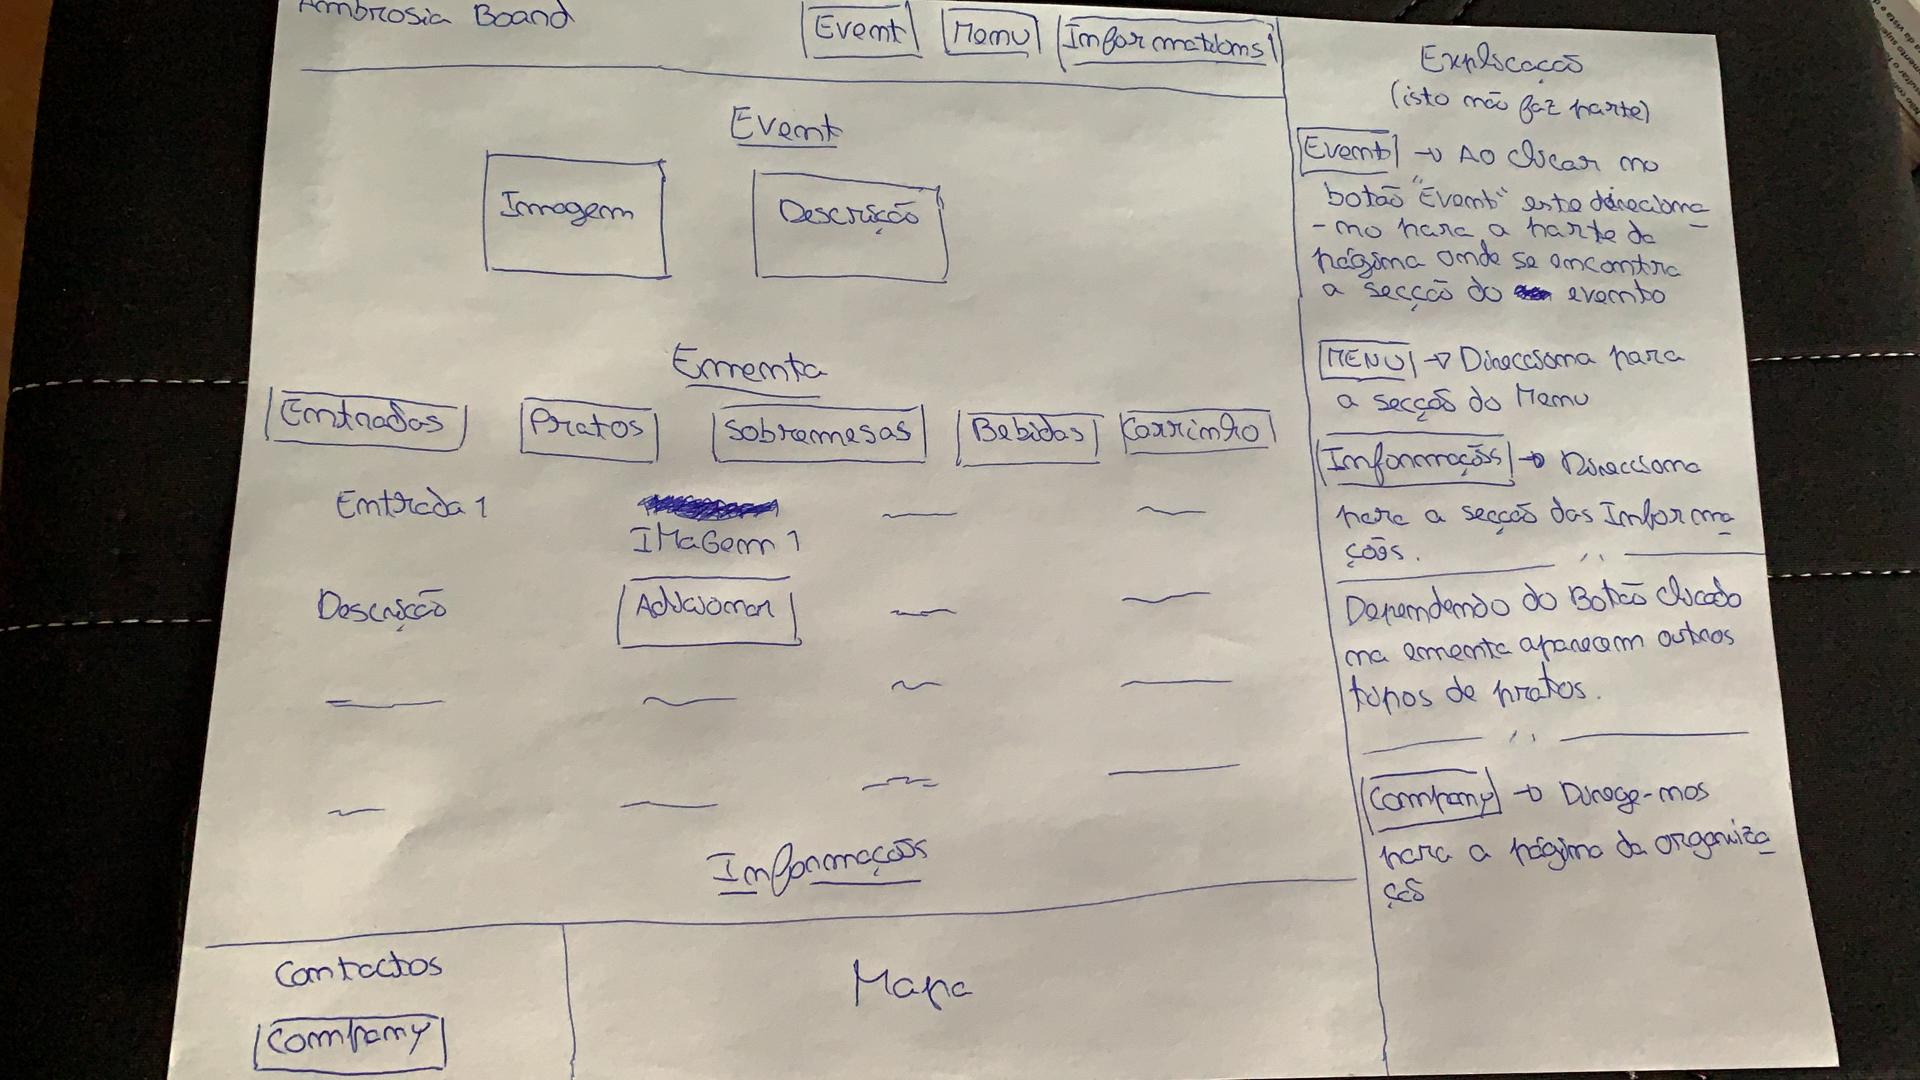 Ambrosia Board
Event Menu Informations
Event
Imagem Descrição
Ementa
Entradas Pratos Sobremesas Bebidas Carrinho
Entrada 1
IMaGem 1
Descrição Adicionar
Informações
Contactos
Company
Mapa
Explicação
(isto não faz parte)
Event → Ao clicar no
botão "Event" este direciona
-no para a parte da
página onde se encontra
a secção do evento
MENU → Direcciona para
a secção do Menu
Informações → Direcciona
para a secção das Informa
ções.
Dependendo do Botão clicado
na ementa aparecem outros
tipos de pratos.
Company → Dirige-nos
para a página da organiza
ção